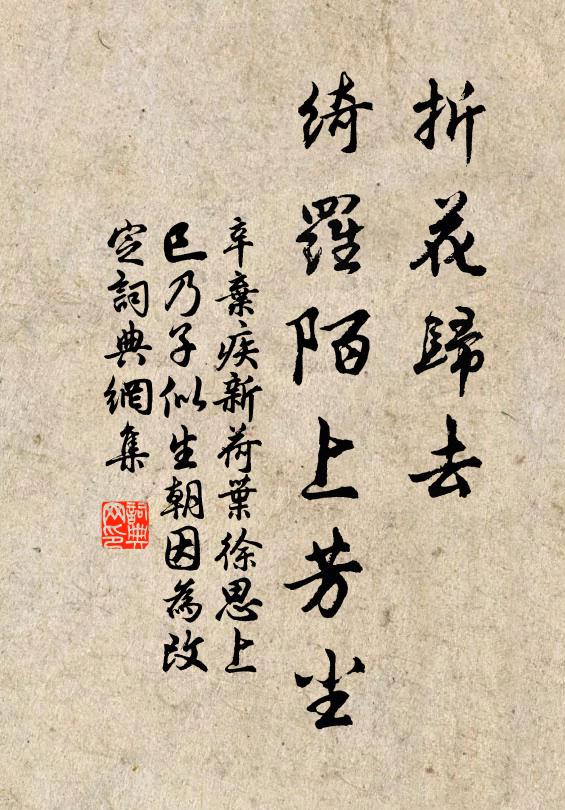 折花歸去
綺羅陌上芳尘
辛棄疾新荷葉徐思上
巳乃子似生朝因為改
定詞典網集
詞典网印